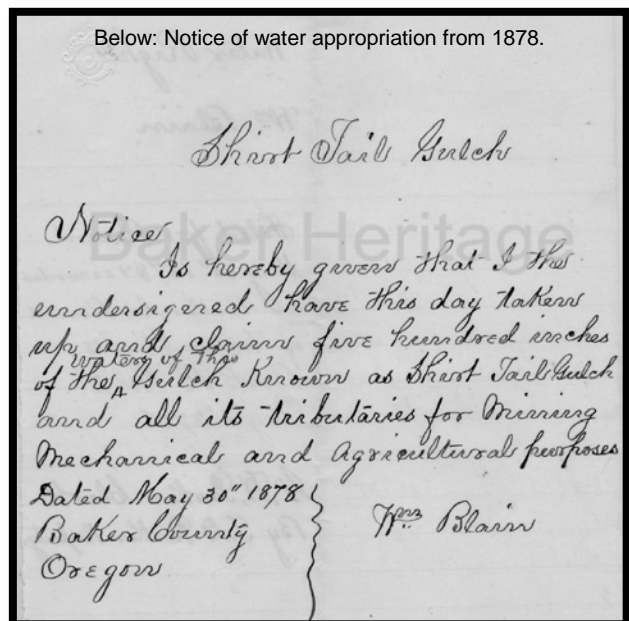 Below: Notice of water appropriation from 1878.
Shirt Tail Gulch
Baker Heritage
Notice
Is hereby given that I the
undersigned have this day taken
up and claim five hundred inches
waters of the
of the Gulch Known as Shirt Tail Gulch
and all its tributaries for Mining
Mechanical and Agricultural purposes
Dated May 30" 1878
Baker County
Oregon
Wm Blain